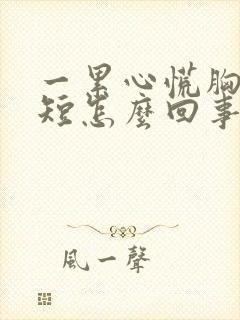 一累心慌胸
短怎麼回事
風一聲